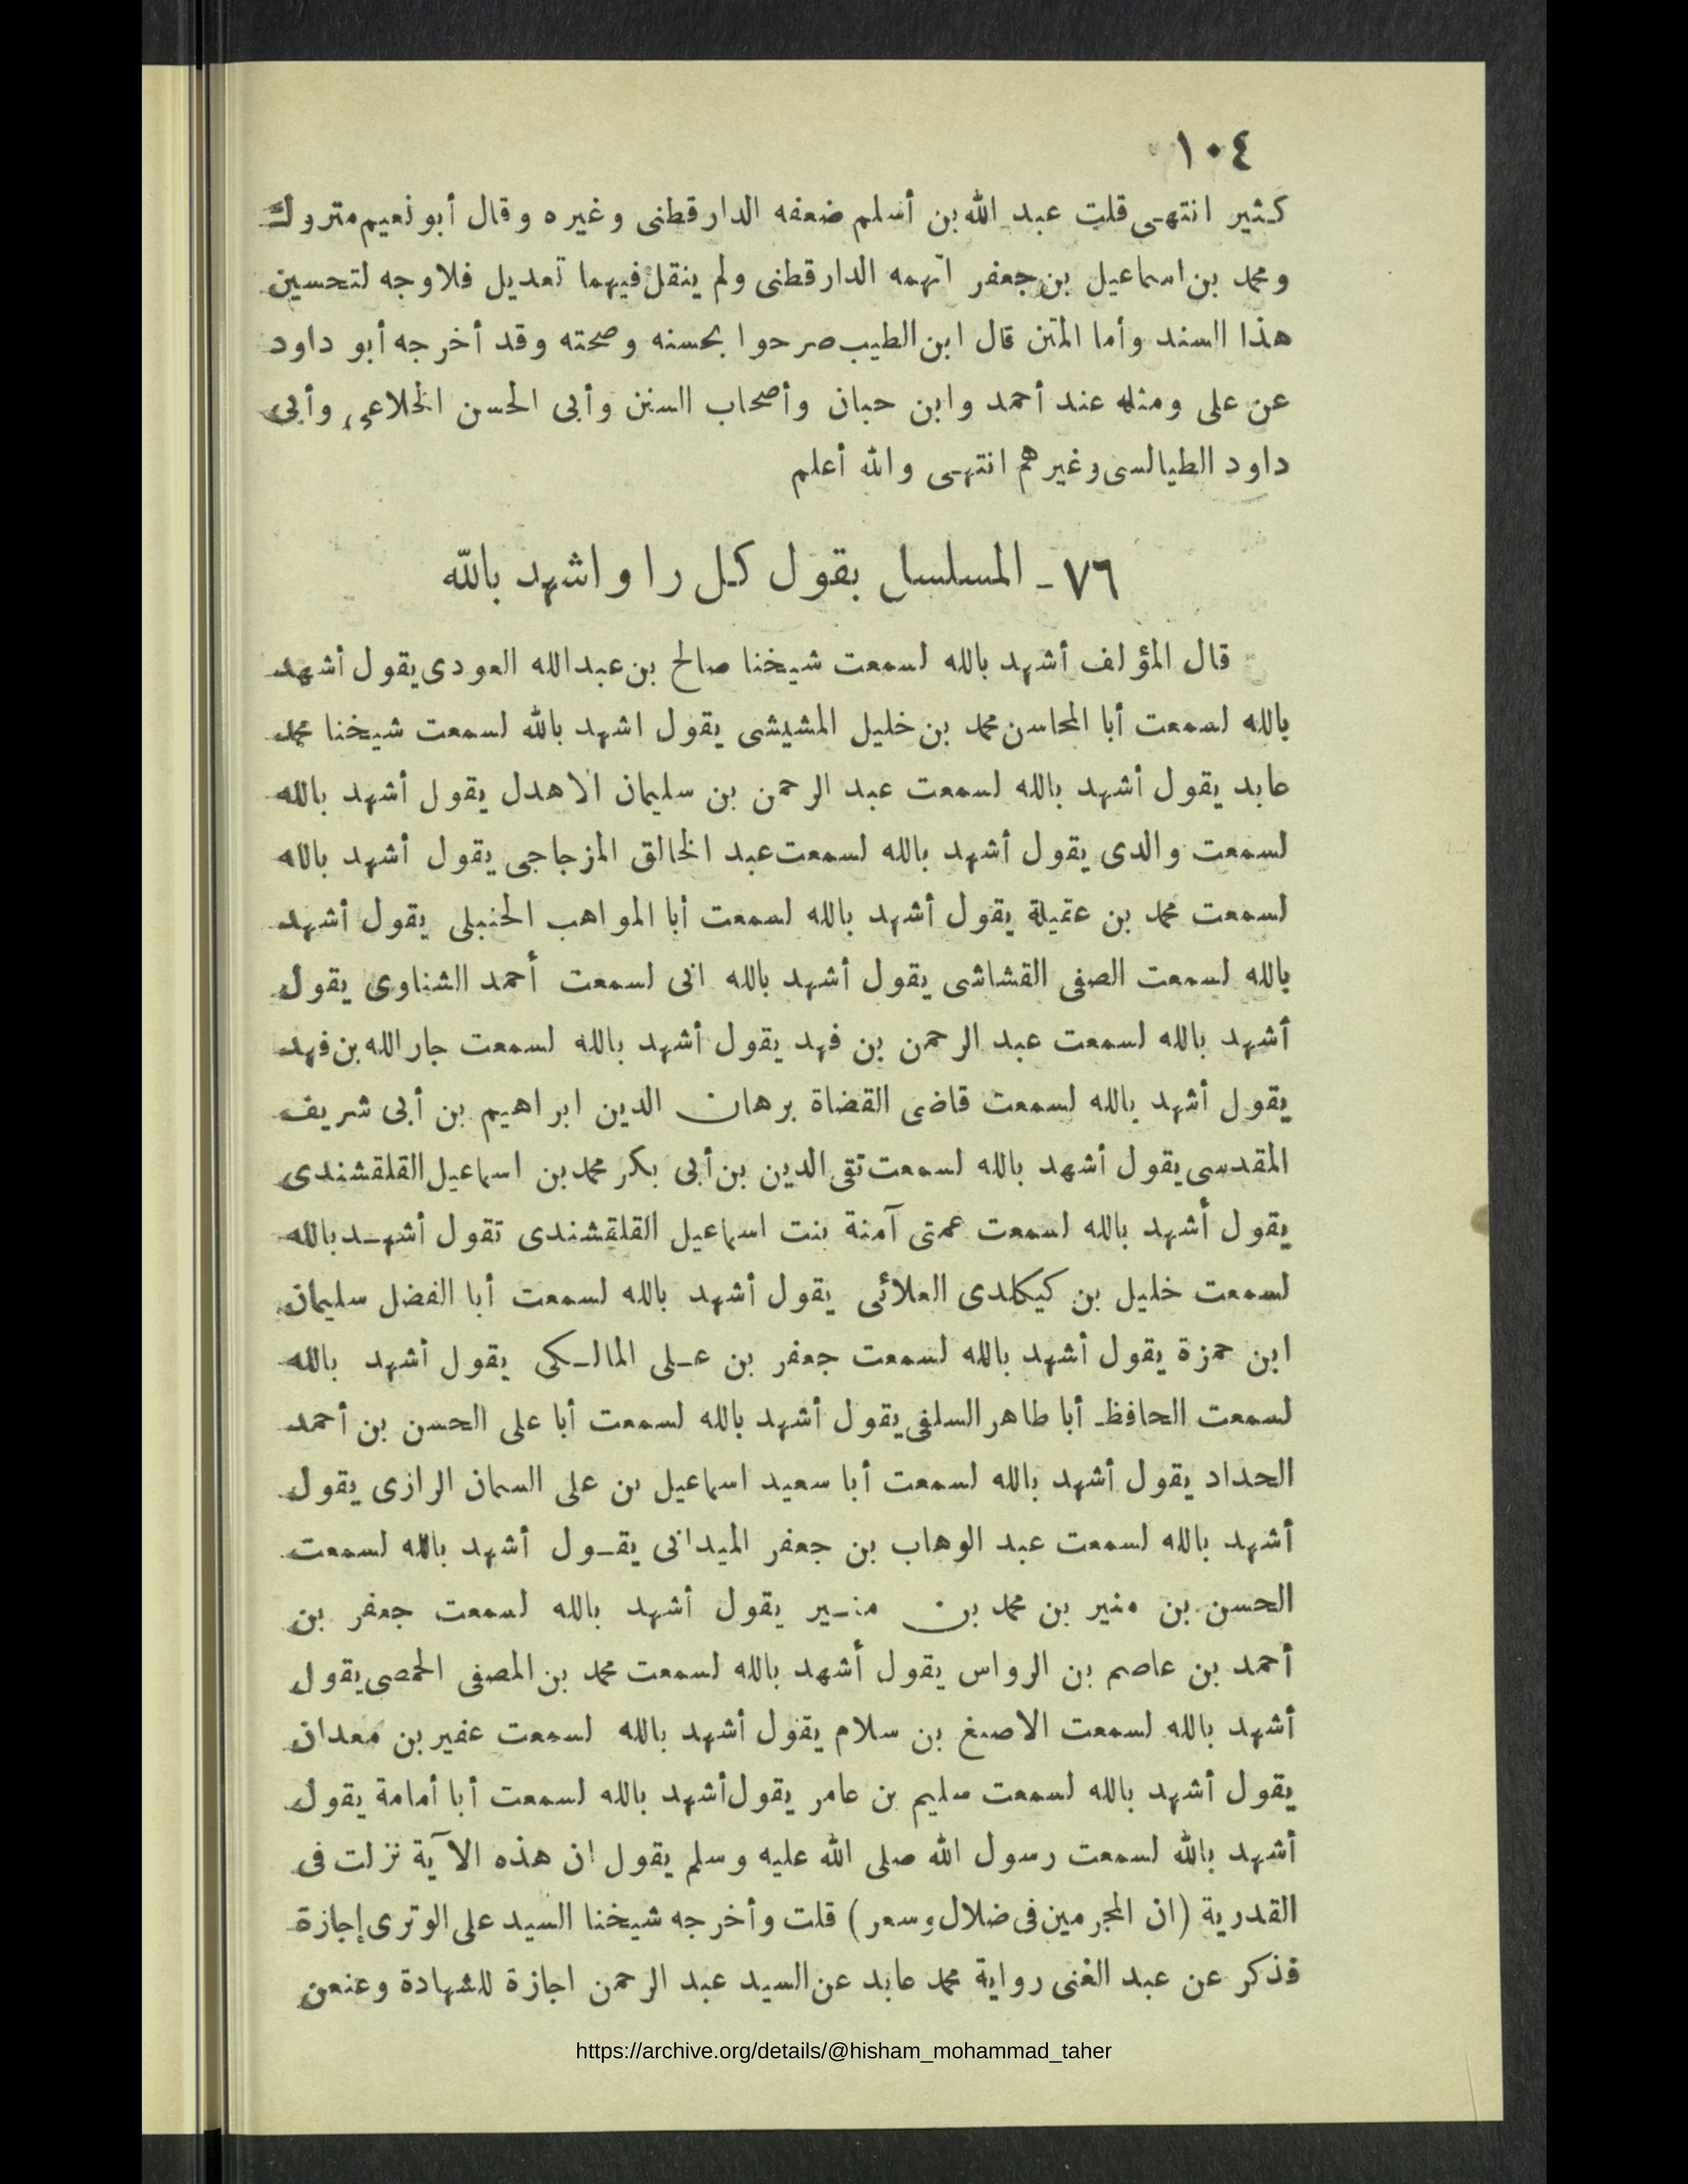 ١٠٤
كثير انتهى قلت عبد الله بن أسلم ضعفه الدارقطنى وغيره وقال أبو نعيم متروك
ومحمد بن اسماعيل بن جعفر اتهمه الدارقطنى ولم ينقل فيهما تعديل فلا وجه لتحسين
هذا السند وأما المتن قال ابن الطيب صرحوا بحسنه وصحته وقد أخرجه أبو داود
عن على ومثله عند أحمد وابن حبان وأصحاب السنن وأبى الحسن الخلاعى وأبى
داود الطيالسى وغيرهم انتهى والله أعلم
٧٦ ـ المسلسل بقول كل راو اشهد بالله
قال المؤلف أشهد بالله لسمعت شيخنا صالح بن عبدالله العودى يقول أشهد
بالله لسمعت أبا المحاسن محمد بن خليل المشيشى يقول اشهد بالله لسمعت شيخنا محمد
عابد يقول أشهد بالله لسمعت عبد الرحمن بن سليمان الاهدل يقول أشهد بالله
لسمعت والدى يقول أشهد بالله لسمعت عبد الخالق المزجاجى يقول أشهد بالله
لسمعت محمد بن عقيلة يقول أشهد بالله لسمعت أبا المواهب الحنبلى يقول أشهد
بالله لسمعت الصفى القشاشى يقول أشهد بالله انى لسمعت أحمد الشناوى يقول
أشهد بالله لسمعت عبد الرحمن بن فهد يقول أشهد بالله لسمعت جار الله بن فهد
يقول أشهد بالله لسمعت قاضى القضاة برهان الدين ابراهيم بن أبى شريف
المقدسى يقول أشهد بالله لسمعت تقى الدين بن أبى بكر محمد بن اسماعيل القلقشندى
يقول أشهد بالله لسمعت عمتى آمنة بنت اسماعيل القلقشندى تقول أشهد بالله
لسمعت خليل بن كيكلدى العلائى يقول أشهد بالله لسمعت أبا الفضل سليمان
ابن حمزة يقول أشهد بالله لسمعت جعفر بن على المالكى يقول أشهد بالله
لسمعت الحافظ أبا طاهر السلفى يقول أشهد بالله لسمعت أبا على الحسن بن أحمد
الحداد يقول أشهد بالله لسمعت أبا سعيد اسماعيل بن على السمان الرازى يقول
أشهد بالله لسمعت عبد الوهاب بن جعفر الميدانى يقول أشهد بالله لسمعت
الحسن بن منير بن محمد بن منير يقول أشهد بالله لسمعت جعفر بن
أحمد بن عاصم بن الرواس يقول أشهد بالله لسمعت محمد بن المصفى الحمصى يقول
أشهد بالله لسمعت الاصبغ بن سلام يقول أشهد بالله لسمعت عفير بن معدان
يقول أشهد بالله لسمعت سليم بن عامر يقول أشهد بالله لسمعت أبا أمامة يقول
أشهد بالله لسمعت رسول الله صلى الله عليه وسلم يقول ان هذه الآية نزلت فى
القدرية (ان المجرمين فى ضلال وسعر) قلت وأخرجه شيخنا السيد على الوترى إجازة
فذكر عن عبد الغنى رواية محمد عابد عن السيد عبد الرحمن اجازة للشهادة وعنعن
https://archive.org/details/@hisham_mohammad_taher